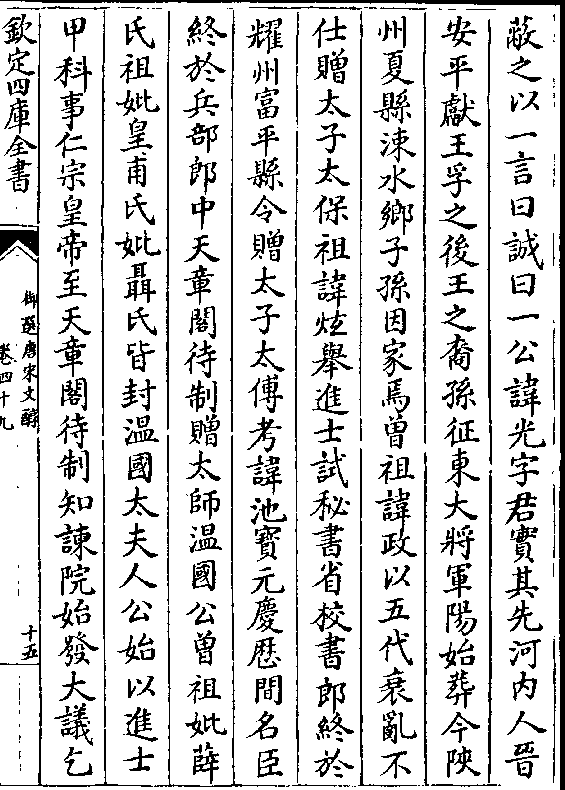 蔽之以一言曰誠曰一公諱光字君實其先河内人晉
安平獻王孚之後王之裔孫征東大將軍陽始葬今陜
州夏縣涑水鄉子孫因家焉曾祖諱政以五代衰亂不
仕贈太子太保祖諱炫舉進士試秘書省校書郎終於
耀州富平縣令贈太子太傅考諱池寳元慶厯間名臣
終於兵部郎中天章閣待制贈太師温國公曾祖妣薛
氏祖妣皇甫氏妣聶氏皆封温國太夫人公始以進士
甲科事仁宗皇帝至天章閣待制知諫院始發大議乞
欽定四庫全書
御選唐宋文醇
卷四十九
十五